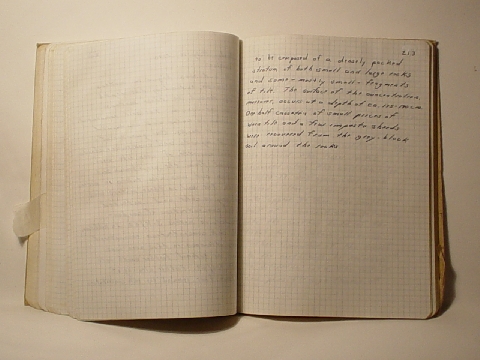 213
to be composed of a densely packed
stratum of both small and large rocks
and some - mostly small - fragments
of tile. The surface of the concentration,
however, occurs at a depth of ca.
One half can of small pieces of
were tile and a few impasto sherds
were recovered from the grey-black
soil around the rocks.